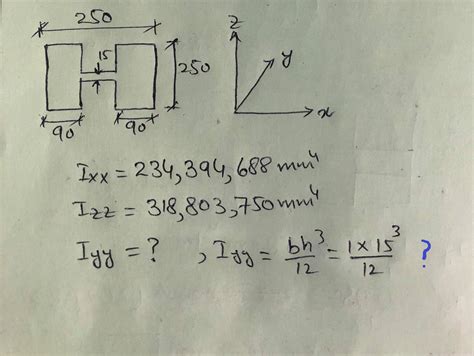 250
z
15
y
250
x
90 90
Ixx = 234,394,688 mm⁴
Izz = 318,803,750 mm⁴
Iyy = ? , Iyy = bh³/12 = 1×15³/12 ?